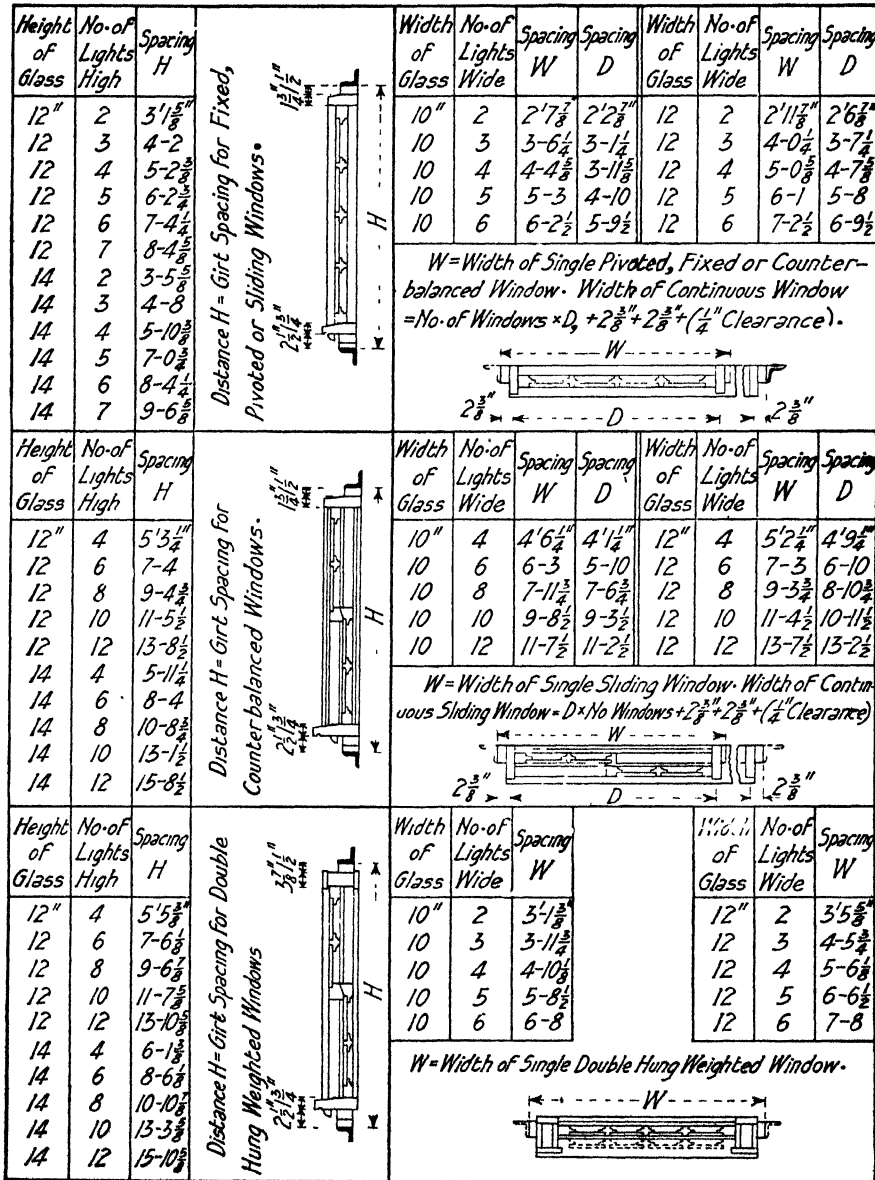 Height of Glass | No. of Lights High | Spacing H
12" | 2 | 3'1 5/8"
12 | 3 | 4-2
12 | 4 | 5-2 3/8
12 | 5 | 6-2 3/4
12 | 6 | 7-4 1/4
12 | 7 | 8-4 5/8
14 | 2 | 3-5 5/8
14 | 3 | 4-8
14 | 4 | 5-10 3/8
14 | 5 | 7-0 3/4
14 | 6 | 8-4 1/4
14 | 7 | 9-6 5/8
Distance H = Girt Spacing for Fixed,
Pivoted or Sliding Windows.
1 3/4" 1 1/2"
H
2 1/2" 1 3/4"
Width of Glass | No. of Lights Wide | Spacing W | Spacing D | Width of Glass | No. of Lights Wide | Spacing W | Spacing D
10" | 2 | 2'7 7/8" | 2'2 7/8" | 12 | 2 | 2'11 7/8" | 2'6 7/8"
10 | 3 | 3-6 1/4 | 3-1 1/4 | 12 | 3 | 4-0 1/4 | 3-7 1/4
10 | 4 | 4-4 5/8 | 3-11 5/8 | 12 | 4 | 5-0 5/8 | 4-7 5/8
10 | 5 | 5-3 | 4-10 | 12 | 5 | 6-1 | 5-8
10 | 6 | 6-2 1/2 | 5-9 1/2 | 12 | 6 | 7-2 1/2 | 6-9 1/2
W = Width of Single Pivoted, Fixed or Counter-
balanced Window. Width of Continuous Window
= No. of Windows × D, + 2 3/8" + 2 3/8" + (1/4" Clearance).
W
2 3/8" D 2 3/8"
Height of Glass | No. of Lights High | Spacing H
12" | 4 | 5'3 1/4"
12 | 6 | 7-4
12 | 8 | 9-4 3/4
12 | 10 | 11-5 1/2
12 | 12 | 13-8 1/2
14 | 4 | 5-11 1/4
14 | 6 | 8-4
14 | 8 | 10-8 3/4
14 | 10 | 13-1 1/2
14 | 12 | 15-8 1/2
Distance H = Girt Spacing for
Counterbalanced Windows.
1 3/4" 1 1/2"
H
2 1/2" 1 3/4"
Width of Glass | No. of Lights Wide | Spacing W | Spacing D | Width of Glass | No. of Lights Wide | Spacing W | Spacing D
10" | 4 | 4'6 1/4" | 4'1 1/4" | 12" | 4 | 5'2 1/4" | 4'9 1/4"
10 | 6 | 6-3 | 5-10 | 12 | 6 | 7-3 | 6-10
10 | 8 | 7-11 3/4 | 7-6 3/4 | 12 | 8 | 9-3 3/4 | 8-10 3/4
10 | 10 | 9-8 1/2 | 9-3 1/2 | 12 | 10 | 11-4 1/2 | 10-11 1/2
10 | 12 | 11-7 1/2 | 11-2 1/2 | 12 | 12 | 13-7 1/2 | 13-2 1/2
W = Width of Single Sliding Window. Width of Contin-
uous Sliding Window = D × No Windows + 2 3/8" + 2 3/8" + (1/4" Clearance)
W
2 3/8" D 2 3/8"
Height of Glass | No. of Lights High | Spacing H
12" | 4 | 5'5 3/8"
12 | 6 | 7-6 1/8
12 | 8 | 9-6 7/8
12 | 10 | 11-7 5/8
12 | 12 | 13-10 5/8
14 | 4 | 6-1 3/8
14 | 6 | 8-6 1/8
14 | 8 | 10-10 7/8
14 | 10 | 13-3 5/8
14 | 12 | 15-10 5/8
Distance H = Girt Spacing for Double
Hung Weighted Windows
3 7/8" 1 1/2"
H
2 1/2" 1 3/4"
Width of Glass | No. of Lights Wide | Spacing W
10" | 2 | 3'-1 3/8"
10 | 3 | 3-11 3/4
10 | 4 | 4-10 1/8
10 | 5 | 5-8 1/2
10 | 6 | 6-8
Width of Glass | No. of Lights Wide | Spacing W
12" | 2 | 3'5 5/8"
12 | 3 | 4-5 3/4
12 | 4 | 5-6 1/8
12 | 5 | 6-6 1/2
12 | 6 | 7-8
W = Width of Single Double Hung Weighted Window.
W